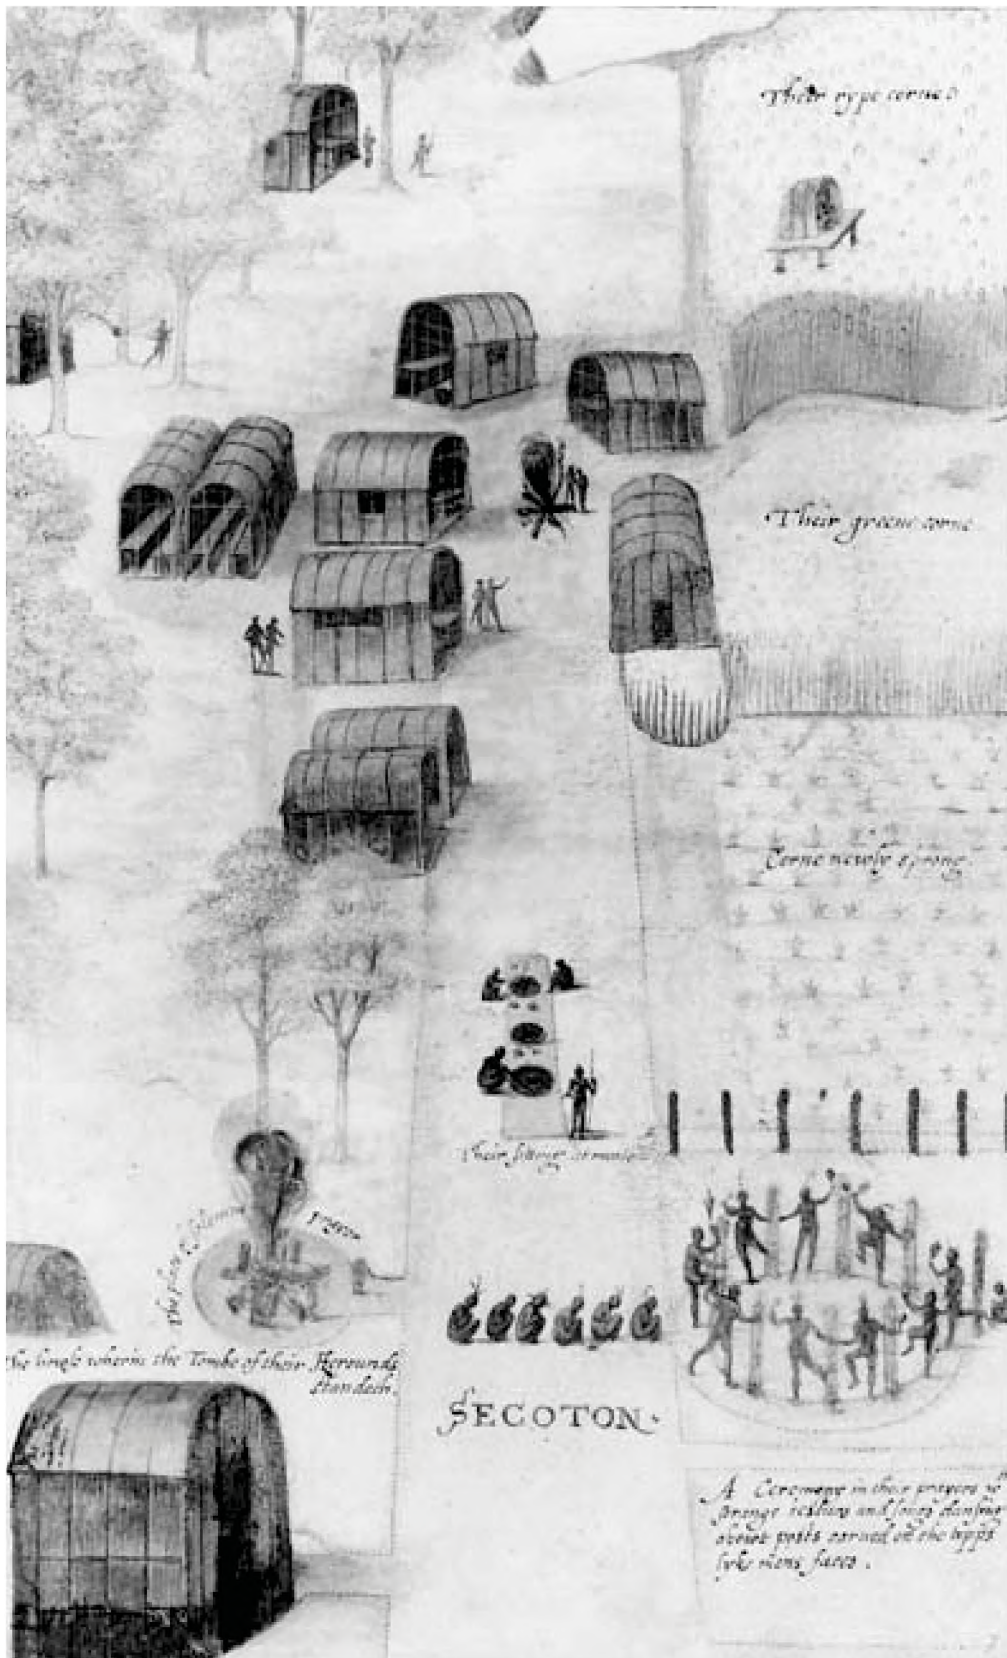 Their rype corne.
Their greene corne
Corne newly sprong.
Their sitting at meate
The place of solemne prayer
The howse wherin the Tombe of their Herounds
standeth.
SECOTON.
A Ceremony in their prayers wt
strange iestures and songs dansing
abowt posts carued on the topps
lyke mens faces.